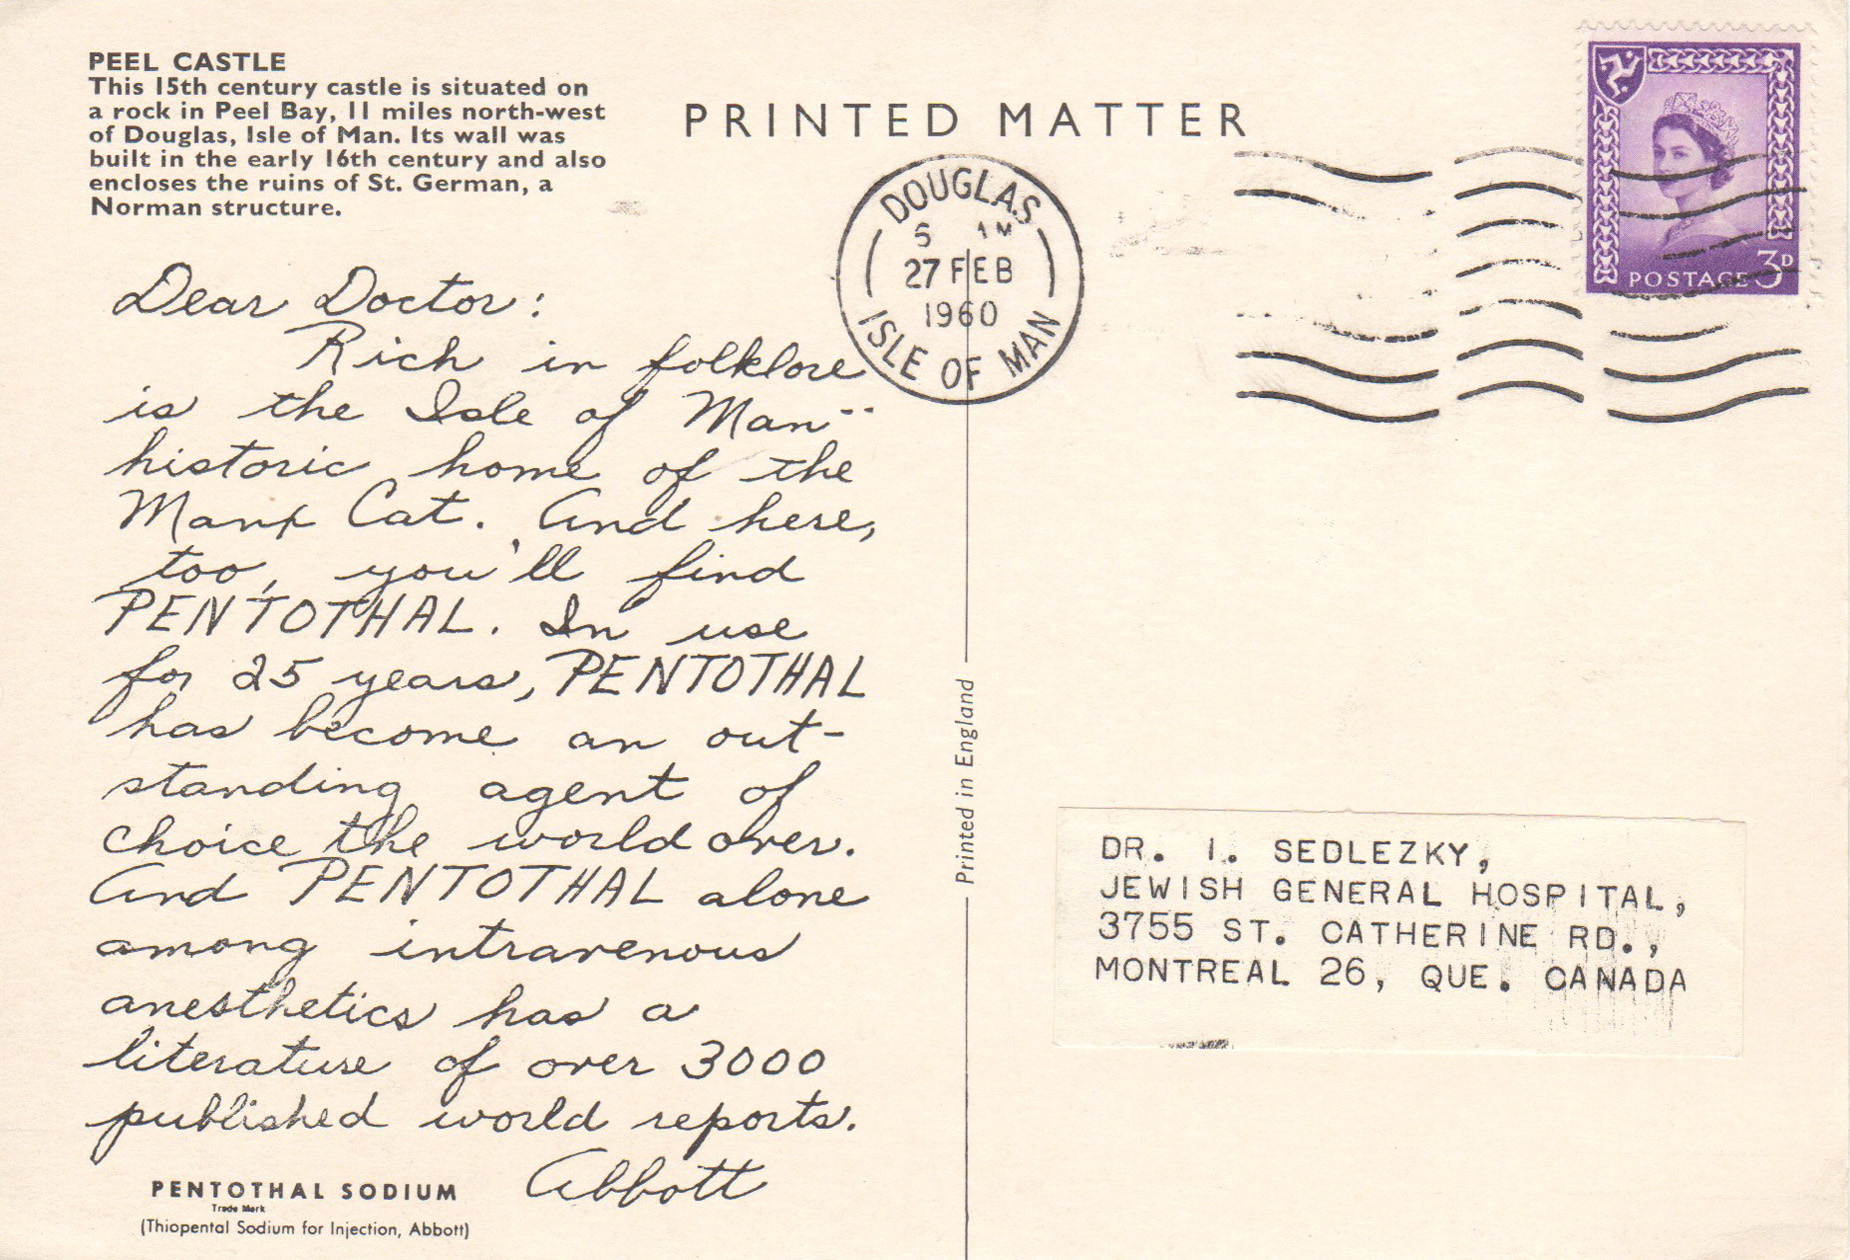 PEEL CASTLE
This 15th century castle is situated on
a rock in Peel Bay, 11 miles north-west
of Douglas, Isle of Man. Its wall was
built in the early 16th century and also
encloses the ruins of St. German, a
Norman structure.
PRINTED MATTER
DOUGLAS
27 FEB
1960
ISLE OF MAN
POSTAGE 3D
Dear Doctor:
Rich in folklore
is the Isle of Man--
historic home of the
Manx Cat. And here,
too, you'll find
PENTOTHAL. In use
for 25 years, PENTOTHAL
has become an out-
standing agent of
choice the world over.
And PENTOTHAL alone
among intravenous
anesthetics has a
literature of over 3000
published world reports.
Abbott
PENTOTHAL SODIUM
Trade Mark
(Thiopental Sodium for Injection, Abbott)
Printed in England
DR. I. SEDLEZKY,
JEWISH GENERAL HOSPITAL,
3755 ST. CATHERINE RD.,
MONTREAL 26, QUE. CANADA